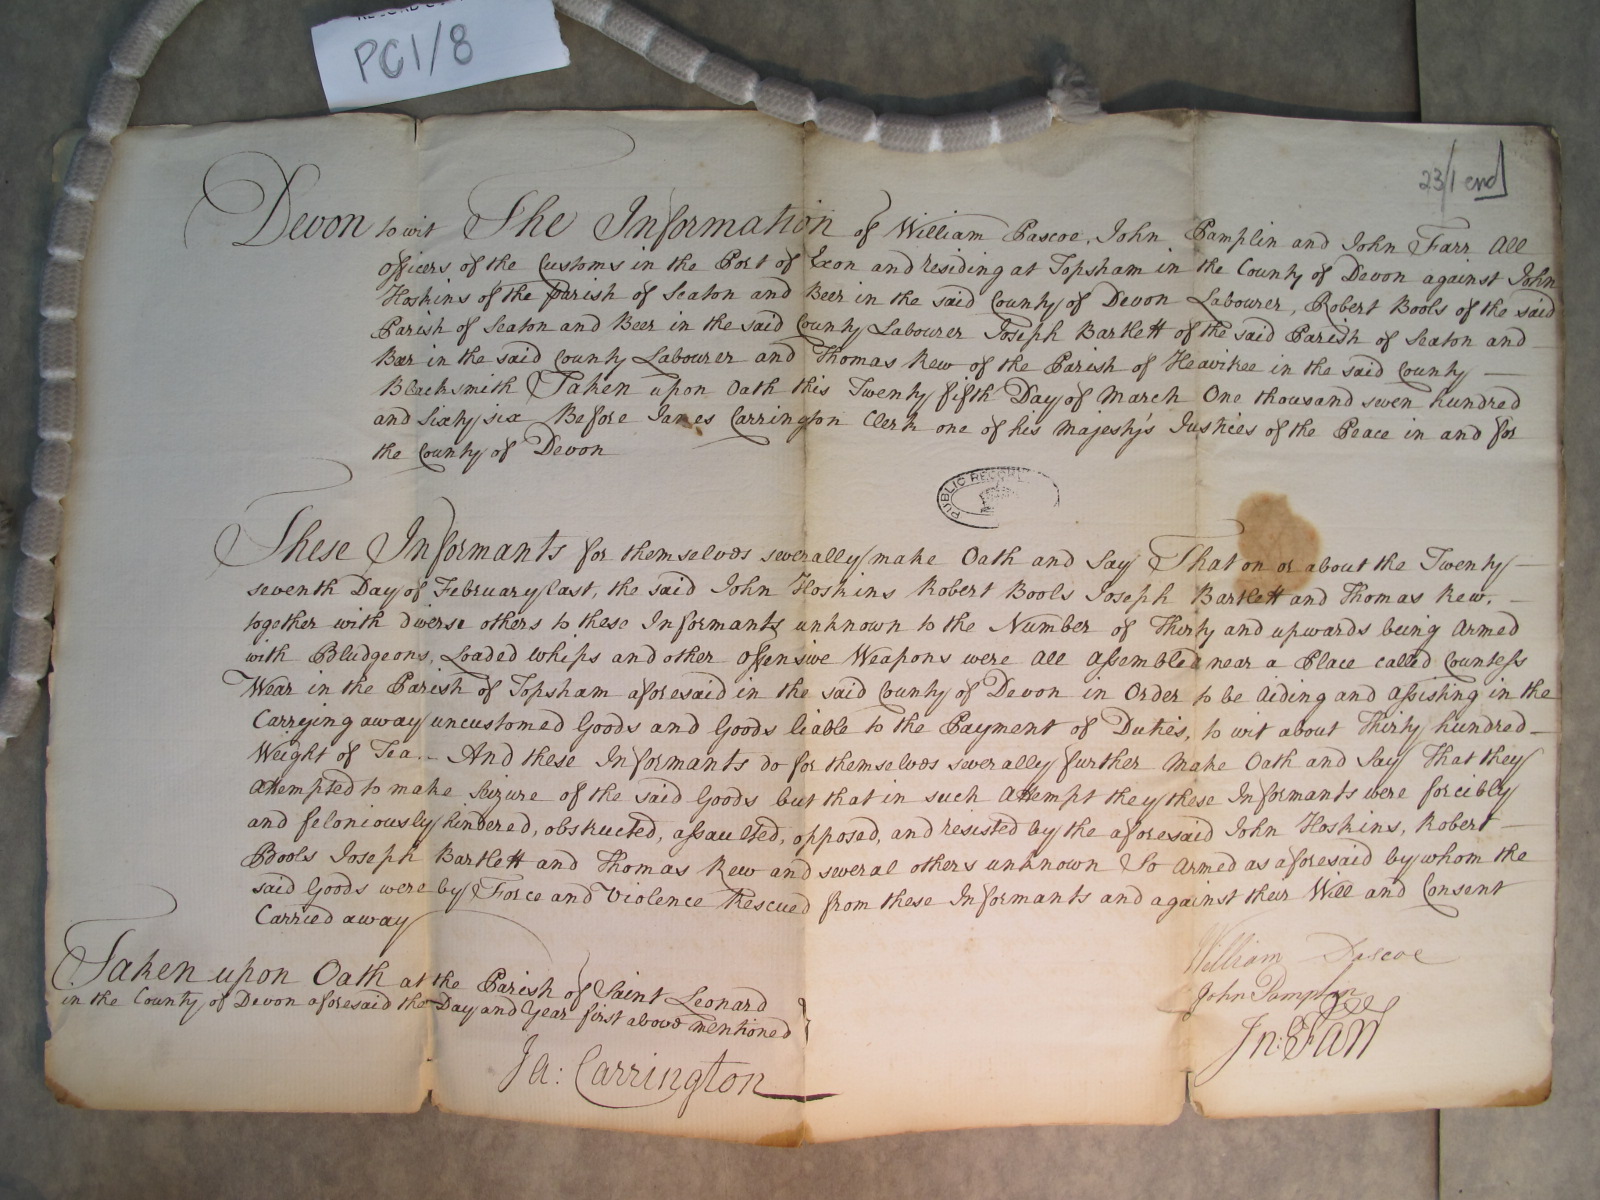 PC1/8
23/1 end
Devon to wit The Information of William Pascoe, John Pamplin and John Farr All
officers of the Customs in the Port of Exon and residing at Topsham in the County of Devon against John
Hoskins of the parish of Seaton and Beer in the said County of Devon Labourer, Robert Bools of the said
Parish of Seaton and Beer in the said County Labourer Joseph Bartlett of the said Parish of Seaton and
Beer in the said County Labourer and Thomas Rew of the Parish of Heavitree in the said County
Blacksmith Taken upon Oath this Twenty fifth Day of March One thousand seven hundred
and Sixty six Before James Carrington Clerk one of his Majesty's Justices of the Peace in and for
the County of Devon
PUBLIC RECORD
These Informants for themselves severally make Oath and Say That on or about the Twenty
seventh Day of February last, the said John Hoskins Robert Bools Joseph Bartlett and Thomas Rew,
together with diverse others to these Informants unknown to the Number of Thirty and upwards being Armed
with Bludgeons, Loaded whips and other offensive Weapons were All Assembled near a Place called Countess
Wear in the Parish of Topsham aforesaid in the said County of Devon in Order to be Aiding and Assisting in the
Carrying away uncustomed Goods and Goods liable to the Payment of Duties, to wit about Thirty hundred
Weight of Tea. And these Informants do for themselves severally further Make Oath and Say That they
Attempted to make Seizure of the said Goods but that in such Attempt they these Informants were forcibly
and feloniously hindered, obstructed, assaulted, opposed, and resisted by the aforesaid John Hoskins, Robert
Bools Joseph Bartlett and Thomas Rew and several others unknown So Armed as aforesaid by whom the
said Goods were by Force and Violence Rescued from these Informants and against their Will and Consent
Carried away
Taken upon Oath at the Parish of Saint Leonard
in the County of Devon aforesaid the Day and Year first above mentioned
Ja: Carrington
William Pascoe
John Pamplin
Jn: Farr